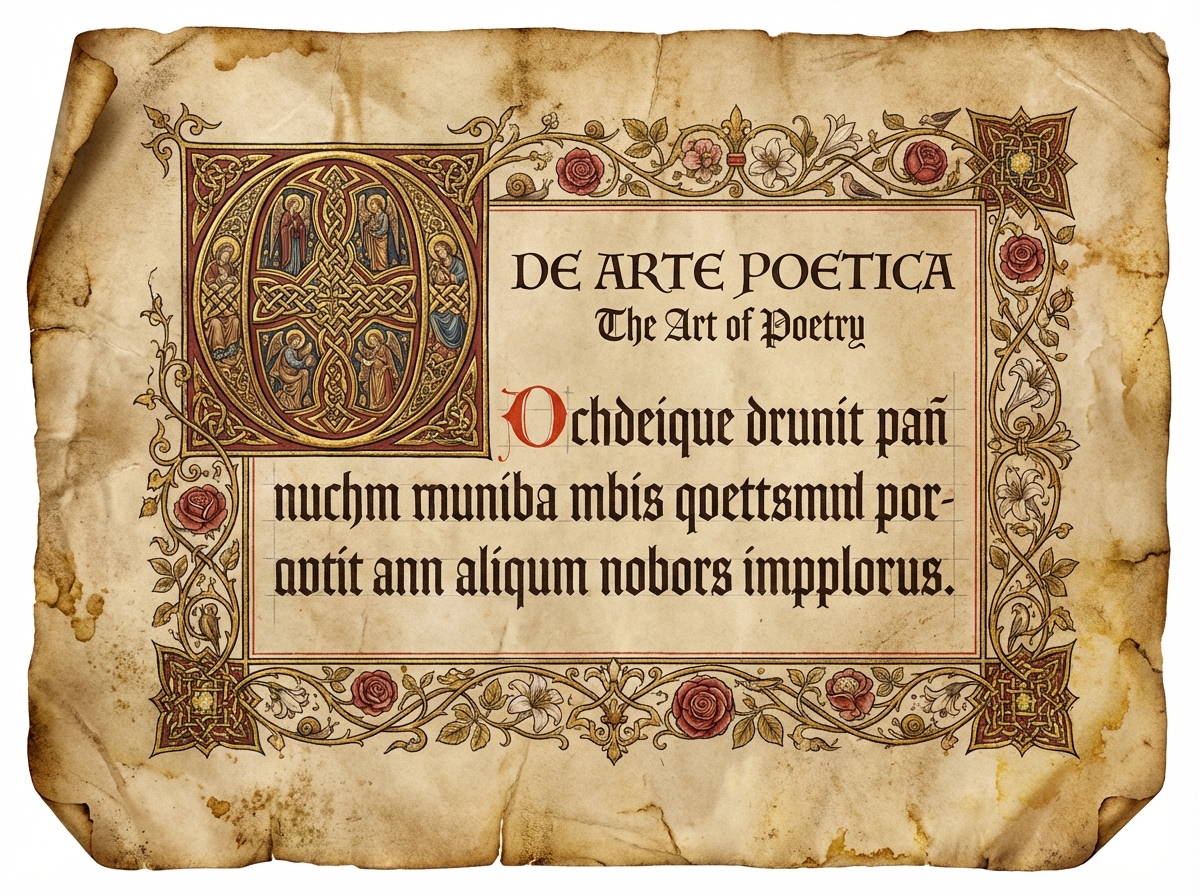 DE ARTE POETICA
The Art of Poetry
Ochdeique drunit pañ
nuchm muniba mbis qoettsmnl por-
aotit ann aliqum nobors impplorus.